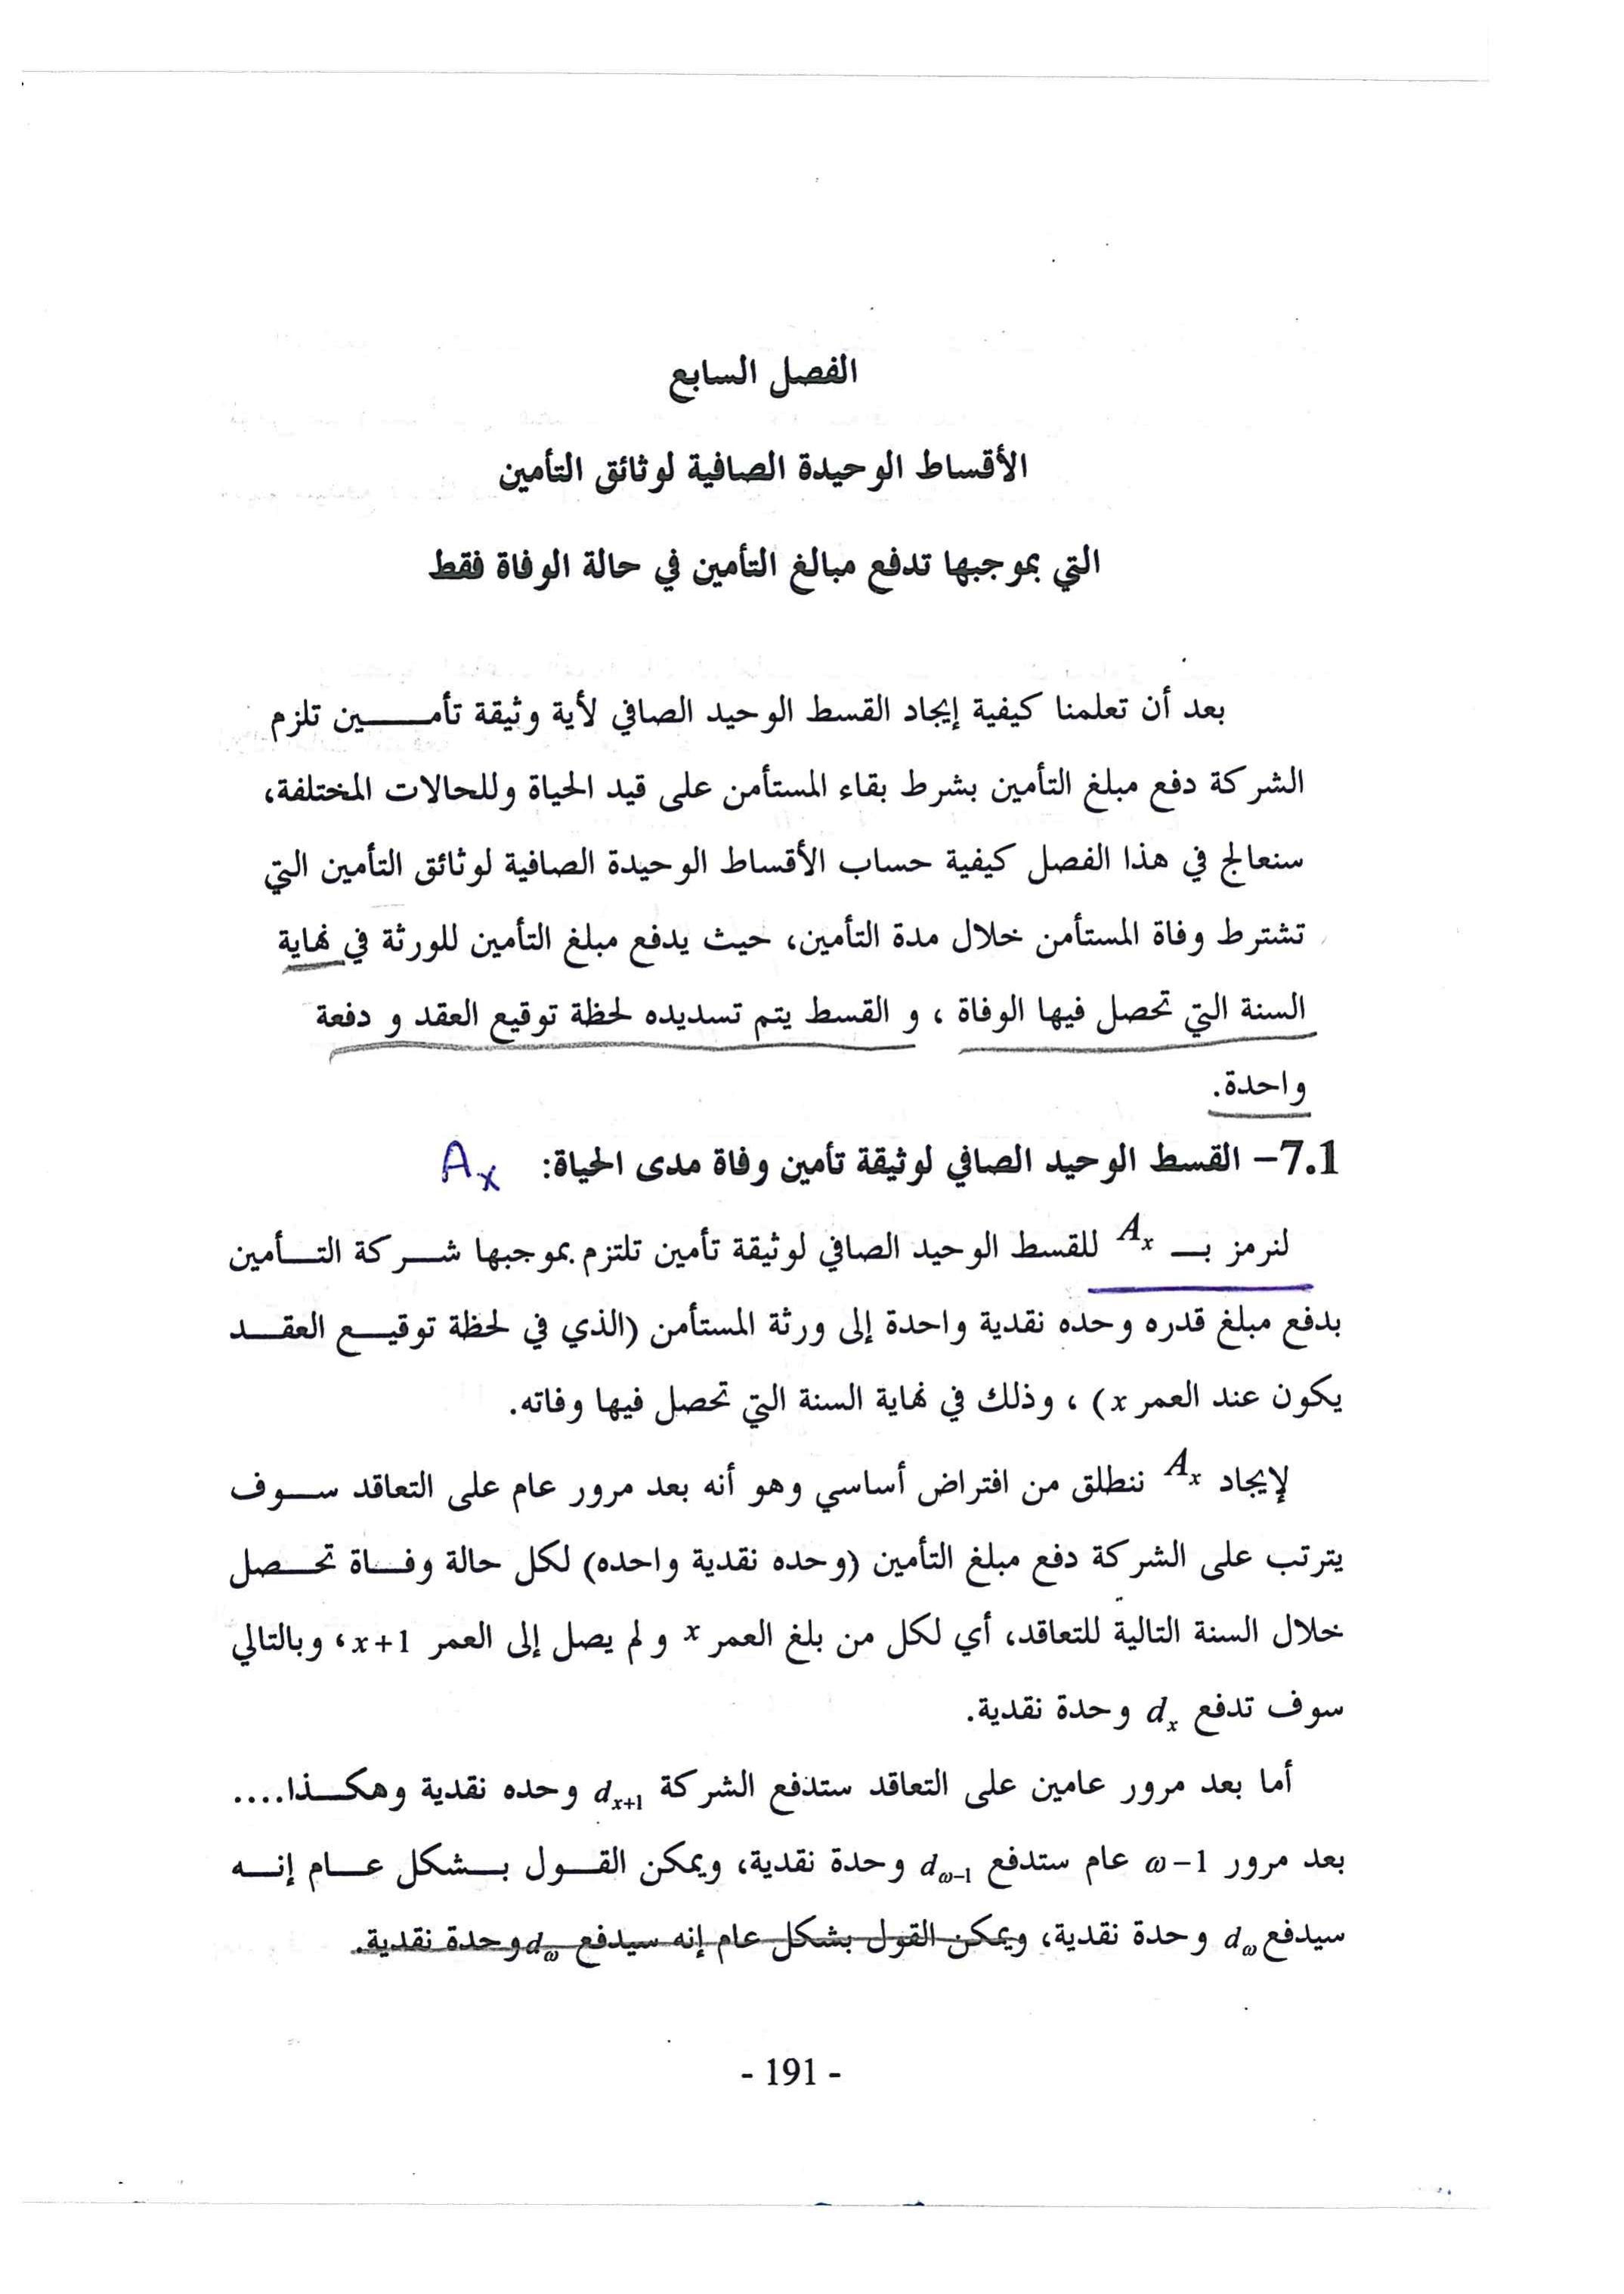 الفصل السابع
الأقساط الوحيدة الصافية لوثائق التأمين
التي بموجبها تدفع مبالغ التأمين في حالة الوفاة فقط
بعد أن تعلمنا كيفية إيجاد القسط الوحيد الصافي لأية وثيقة تأمين تلزم
الشركة دفع مبلغ التأمين بشرط بقاء المستأمن على قيد الحياة وللحالات المختلفة،
سنعالج في هذا الفصل كيفية حساب الأقساط الوحيدة الصافية لوثائق التأمين التي
تشترط وفاة المستأمن خلال مدة التأمين، حيث يدفع مبلغ التأمين للورثة في نهاية
السنة التي تحصل فيها الوفاة ، و القسط يتم تسديده لحظة توقيع العقد و دفعة
واحدة.
7.1- القسط الوحيد الصافي لوثيقة تأمين وفاة مدى الحياة: Ax
لنرمز بـ Ax للقسط الوحيد الصافي لوثيقة تأمين تلتزم بموجبها شركة التأمين
بدفع مبلغ قدره وحده نقدية واحدة إلى ورثة المستأمن (الذي في لحظة توقيع العقد
يكون عند العمر x) ، وذلك في نهاية السنة التي تحصل فيها وفاته.
لإيجاد Ax ننطلق من افتراض أساسي وهو أنه بعد مرور عام على التعاقد سوف
يترتب على الشركة دفع مبلغ التأمين (وحده نقدية واحده) لكل حالة وفاة تحصل
خلال السنة التالية للتعاقد، أي لكل من بلغ العمر x و لم يصل إلى العمر x+1، وبالتالي
سوف تدفع dx وحدة نقدية.
أما بعد مرور عامين على التعاقد ستدفع الشركة dx+1 وحده نقدية وهكذا....
بعد مرور ω-1 عام ستدفع dω-1 وحدة نقدية، ويمكن القول بشكل عام إنه
سيدفع dω وحدة نقدية، ويمكن القول بشكل عام إنه سيدفع dω وحدة نقدية.
- 191 -